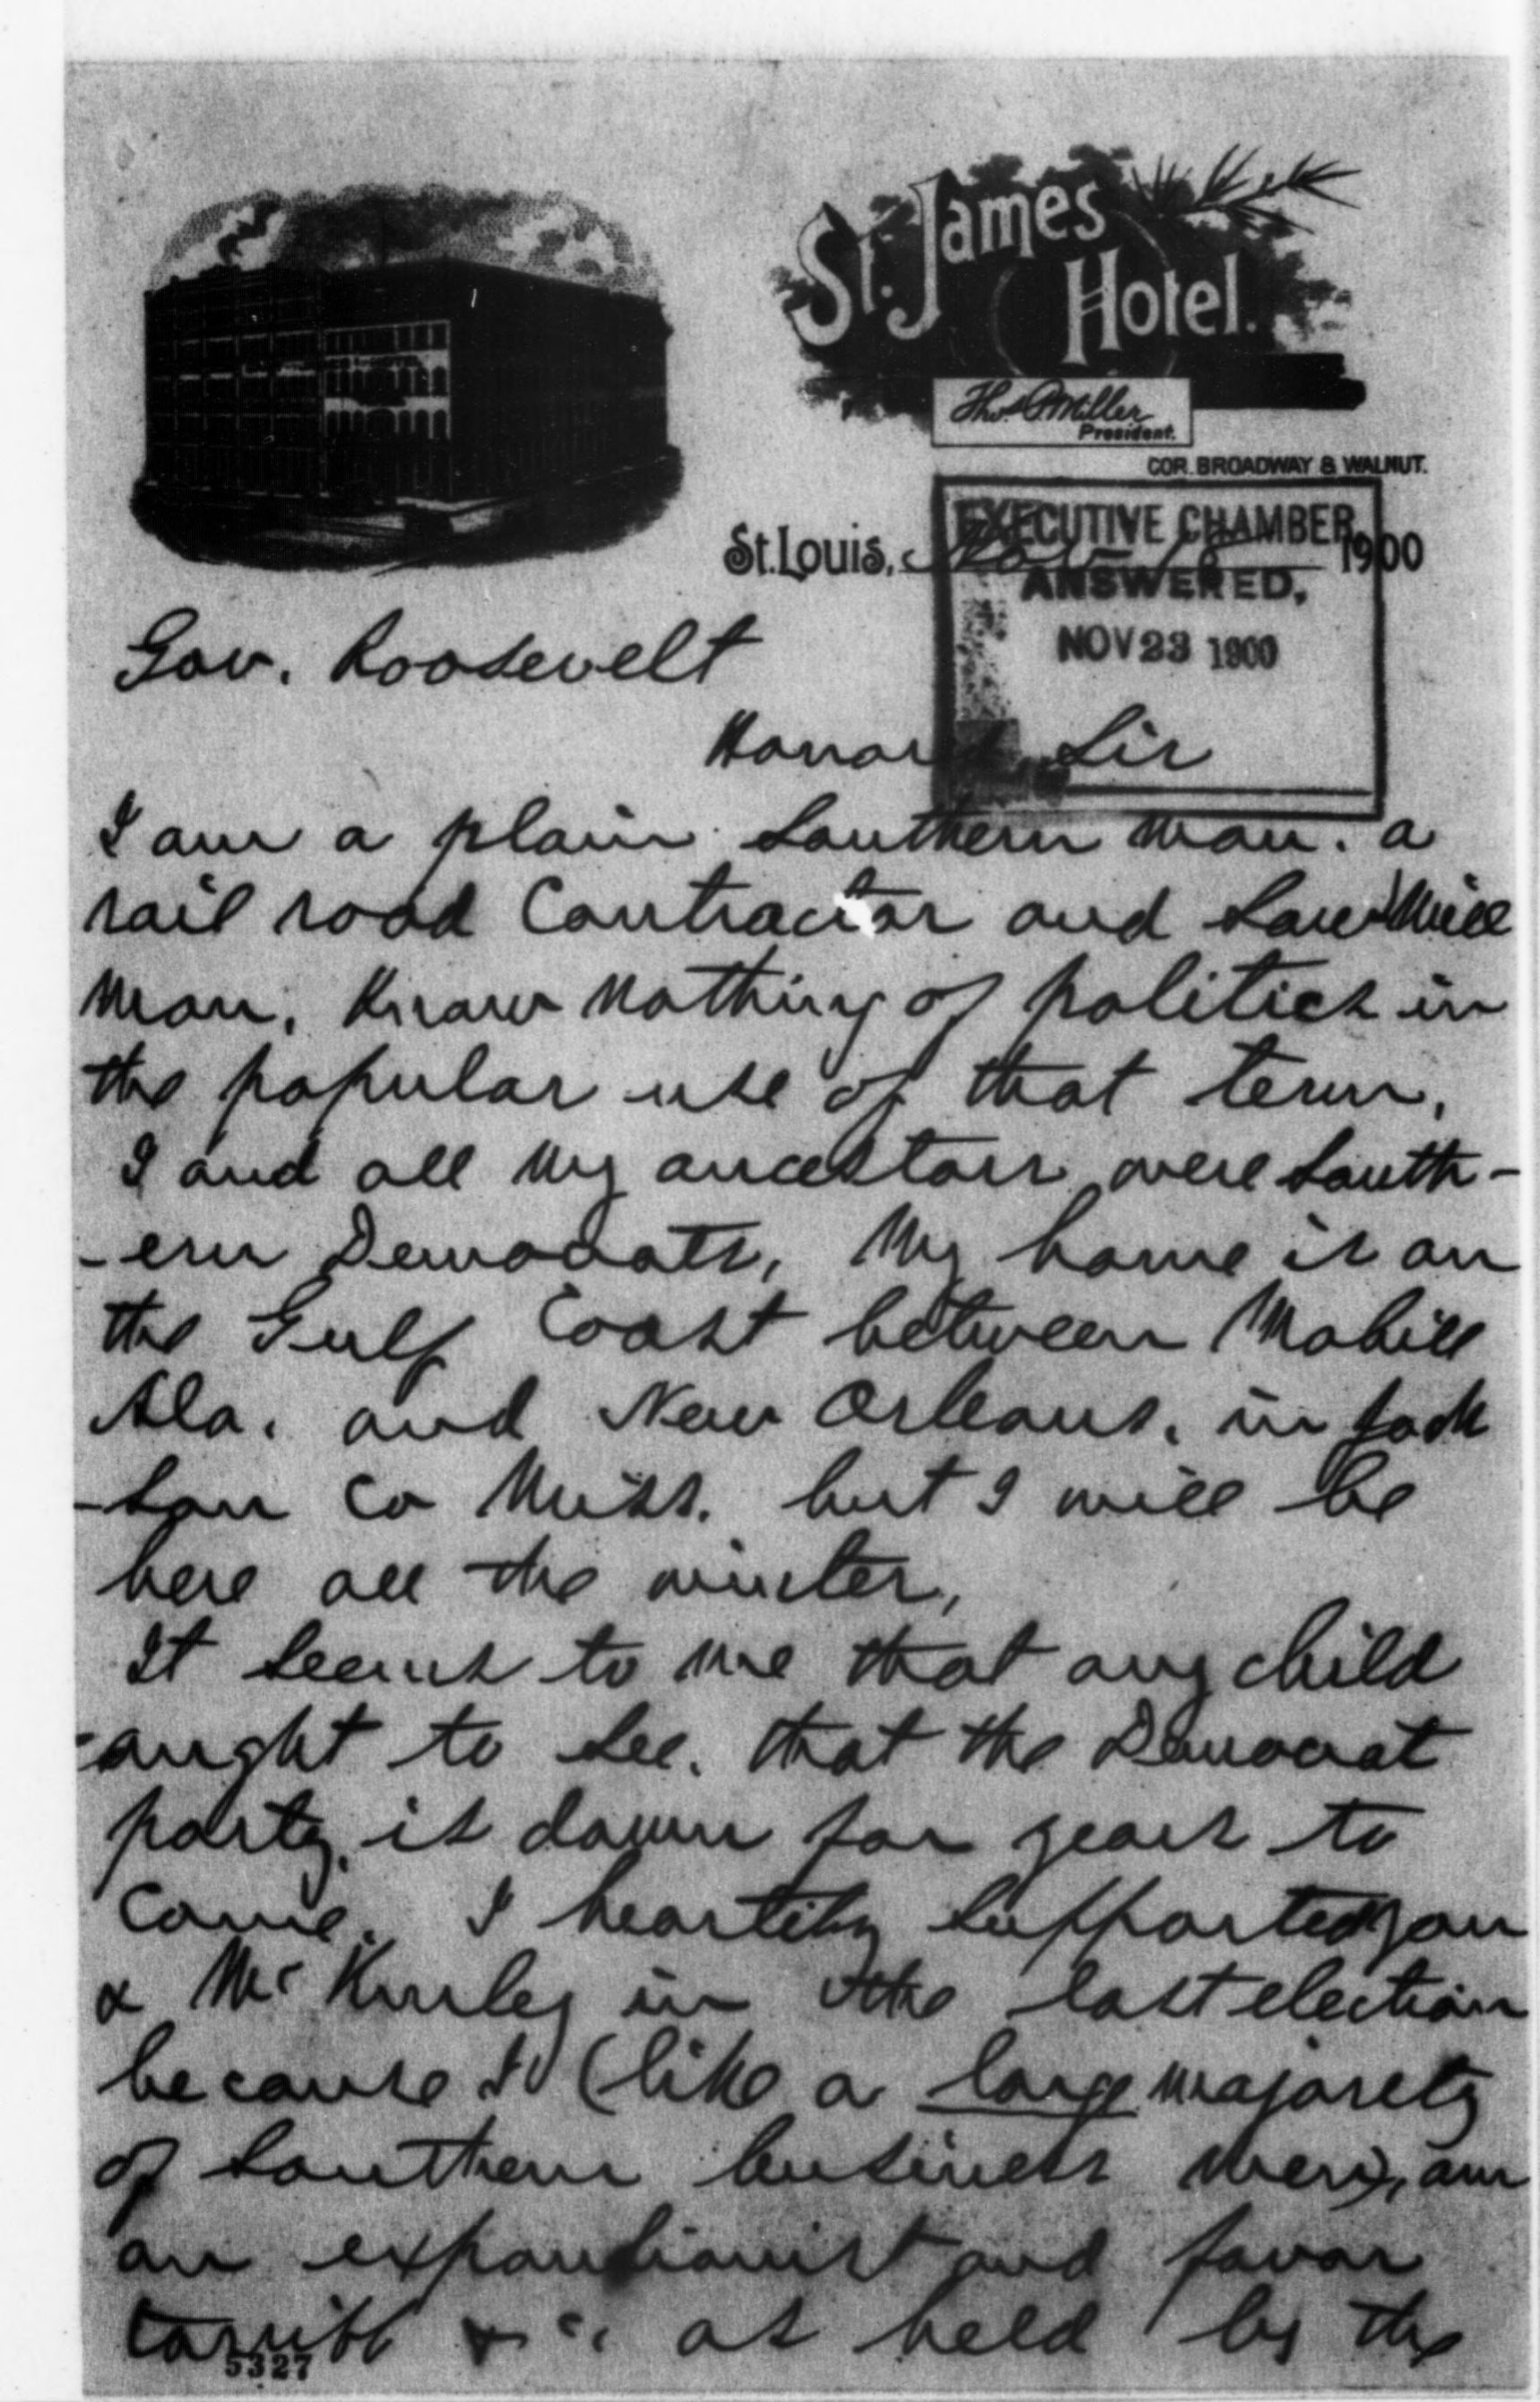 St. James
Hotel.
Thos. P. Miller
President.
COR. BROADWAY & WALNUT.
EXECUTIVE CHAMBER
St. Louis, Nov 18 1900
ANSWERED,
NOV 23 1900
Gov. Roosevelt
Honor Sir
I am a plain Southern man. a
rail road Contractor and Saw Mill
man, Know nothing of politics in
the popular use of that term,
I and all my ancestors were South-
-ern Democrats, My home is on
the Gulf Coast between Mobile
Ala. and New Orleans. in Jack
-son Co Miss. but I will be
here all the winter,
It seems to me that any child
ought to see. that the Democrat
party, is down for years to
Come. I heartily supported you
& McKinley in the last election
because I (like a large majority
of Southern business men), am
an expansionist and favor
tariff &c. as held by the
5327